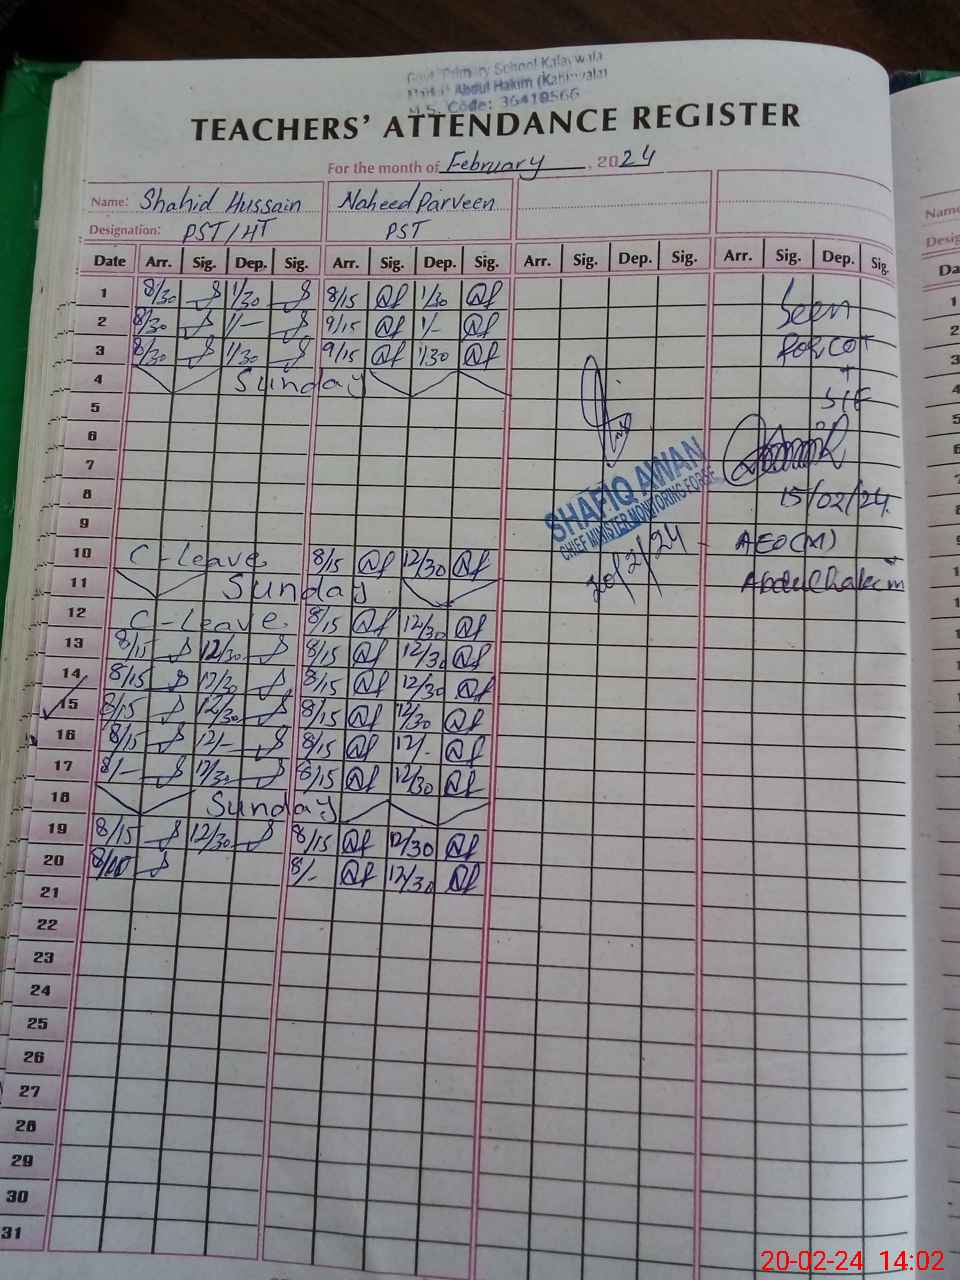 Govt. Primary School Kalaywala
Markaz Abdul Hakim (Kabirwala)
M.S. Code: 36410566
TEACHERS' ATTENDANCE REGISTER
For the month of February, 2024
Name: Shahid Hussain Naheed Parveen
Designation: PST/HT PST
Date Arr. Sig. Dep. Sig. Arr. Sig. Dep. Sig. Arr. Sig. Dep. Sig. Arr. Sig. Dep. Sig.
1 8/30 1/30 8/15 1/30 Seen
2 8/30 1/- 9/15 1/-
3 8/30 1/30 9/15 1/30 For COT
4 Sunday +
5 SIF
6
7
8 15/02/24
9
SHAFIQ AWAN
CHIEF MINISTER MONITORING FORCE
20/2/24
10 C-Leave 8/15 12/30 AEO(M)
11 Sunday Abdul Hakeem
12 C-Leave 8/15 12/30
13 8/15 12/30 8/15 12/30
14 8/15 12/30 8/15 12/30
15 8/15 12/30 8/15 12/30
16 8/15 12/- 8/15 12/-
17 8/- 12/30 8/15 12/30
18 Sunday
19 8/15 12/30 8/15 12/30
20 8/- 12/30
21
22
23
24
25
26
27
28
29
30
31
Name
Desig
Da
1
2
3
4
5
6
7
8
9
10
11
12
13
14
15
16
17
18
19
20
21
22
23
24
25
26
27
28
29
3
20-02-24 14:02